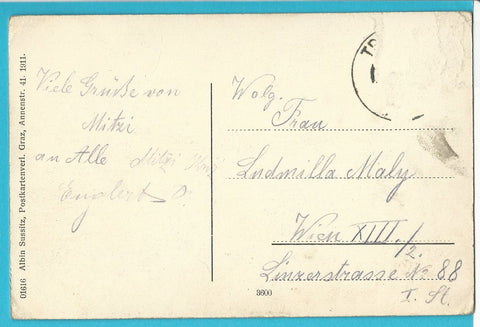 01616 Albin Sussitz, Postkartenverl. Graz, Annenstr. 41. 1911.
Viele Grüße von
Mitzi
an Alle Mitzi
Englert
Wolg.
Frau
Ludmilla Maly
Wien XIII./2.
Linzerstrasse No 88
I. St.
3600